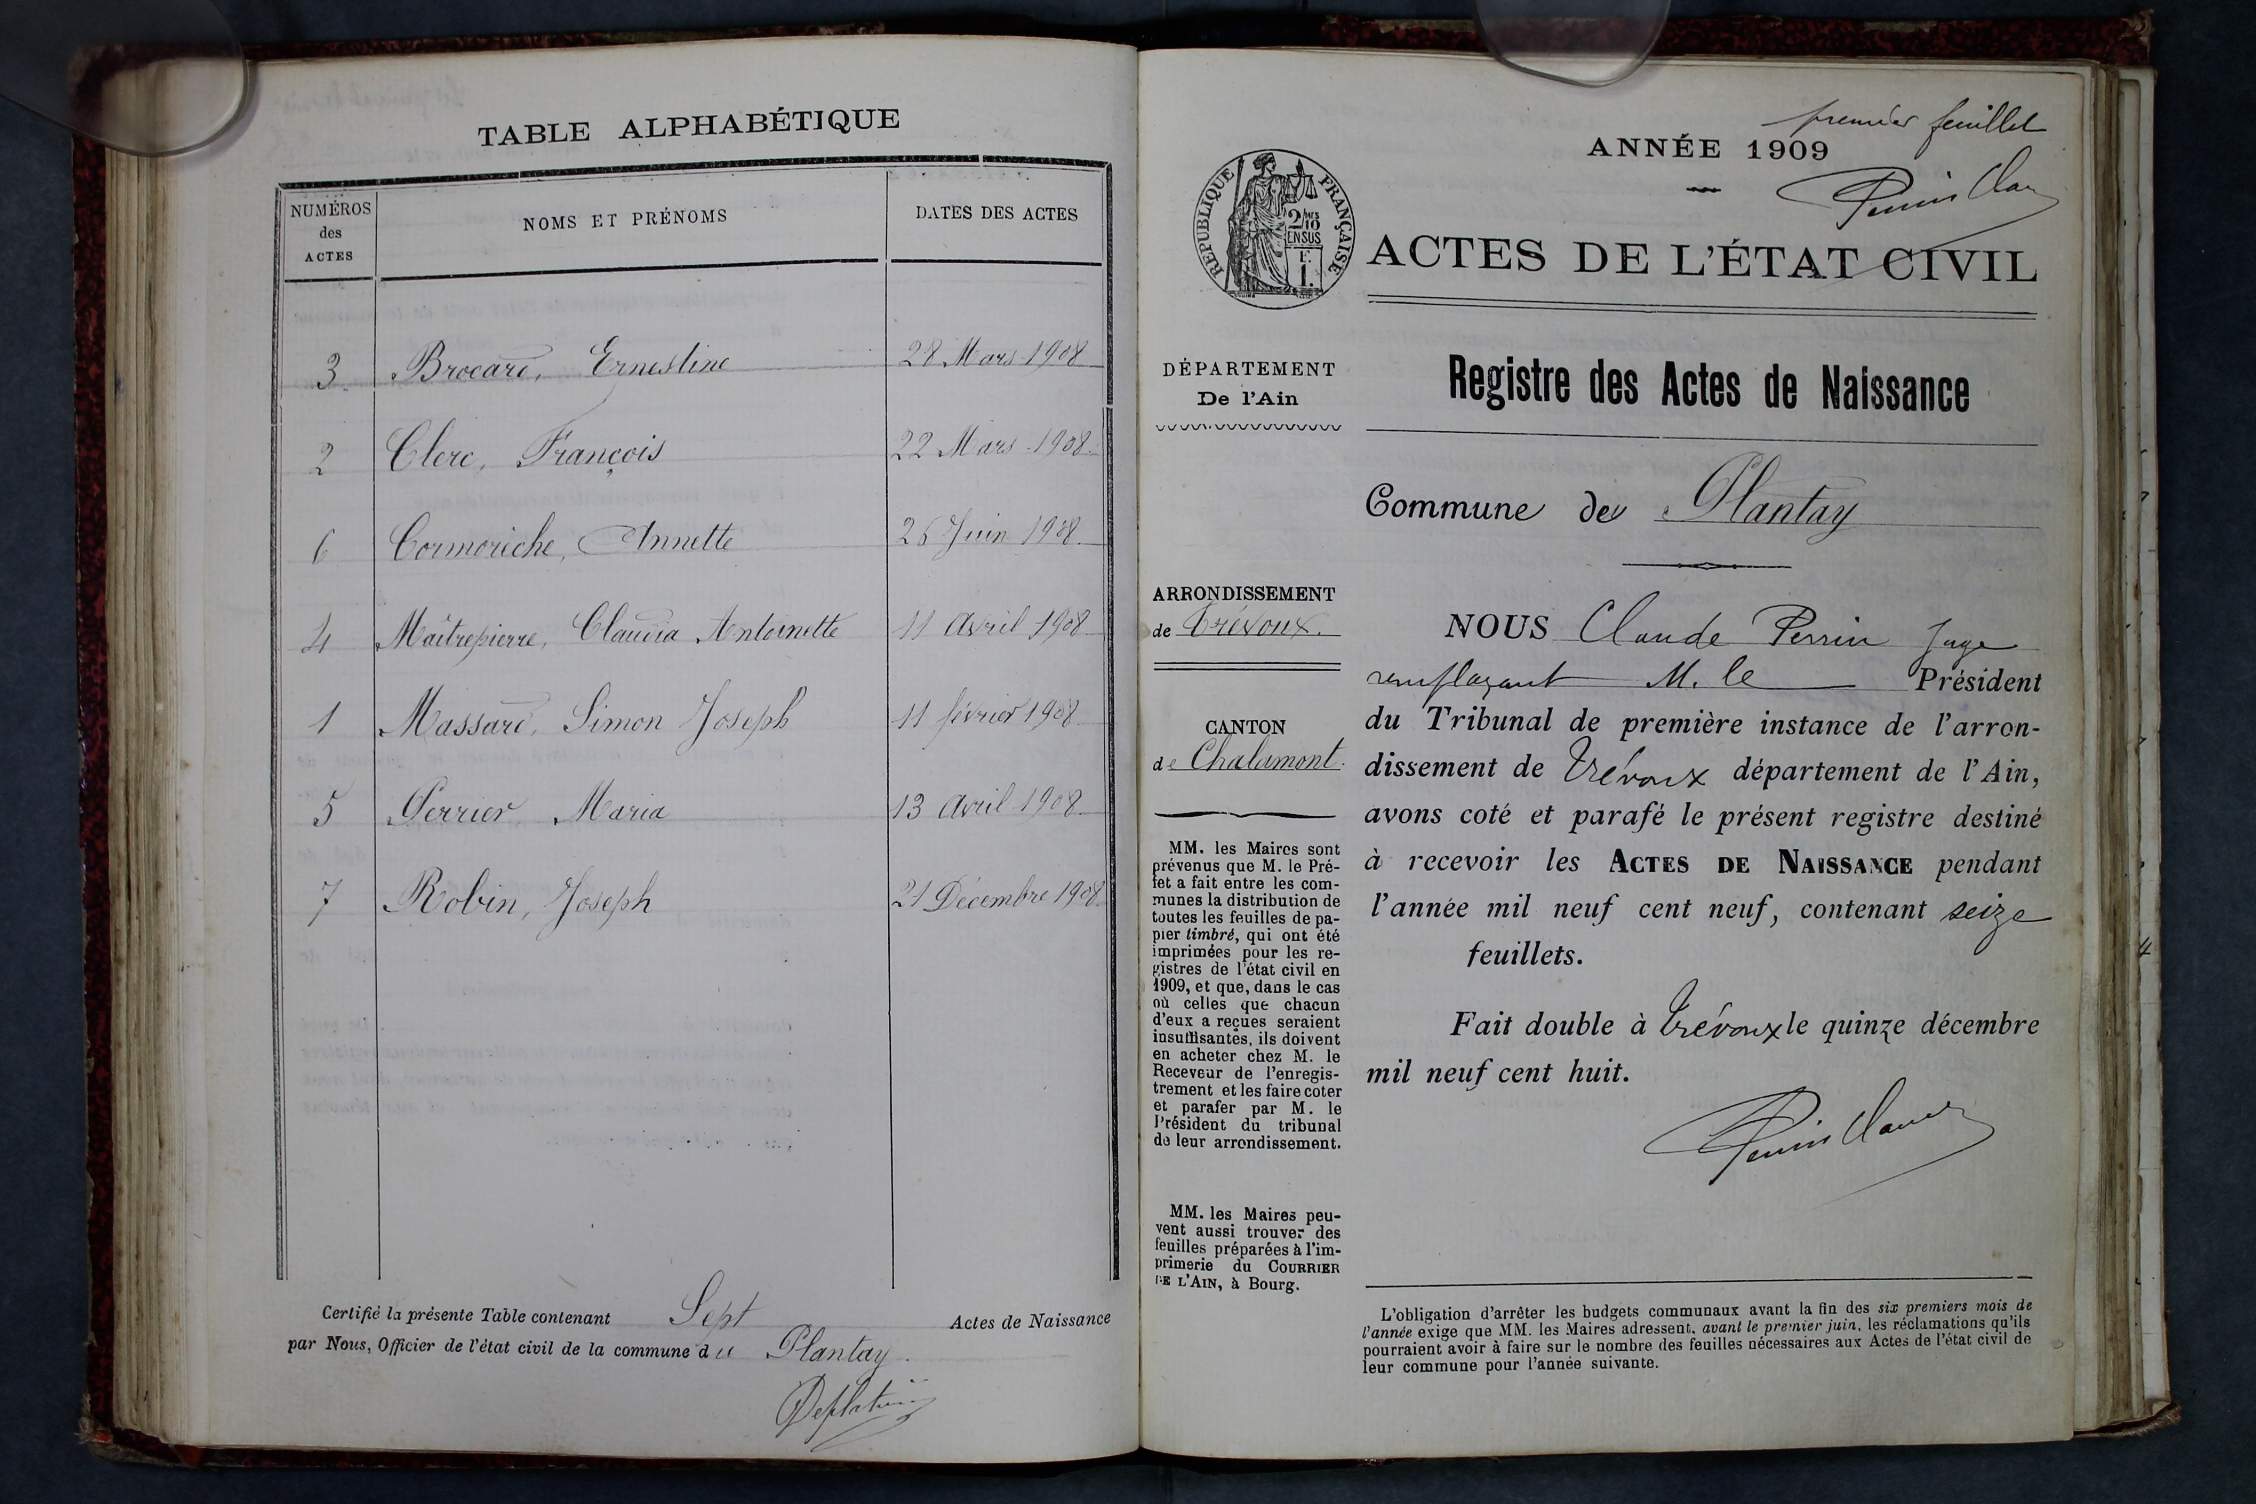 TABLE ALPHABÉTIQUE
NUMÉROS des ACTES
NOMS ET PRÉNOMS
DATES DES ACTES
3 Brocard, Ernestine 28 Mars 1908
2 Clerc, François 22 Mars 1908
6 Cormoriche, Annette 26 Juin 1908
4 Maîtrepierre, Claudia Antoinette 11 Avril 1908
1 Massard, Simon Joseph 11 février 1908
5 Perrier, Maria 13 Avril 1908
7 Robin, Joseph 21 Décembre 1908
Certifié la présente Table contenant Sept Actes de Naissance
par Nous, Officier de l'état civil de la commune du Plantay.
premier feuillet
ANNÉE 1909
RÉPUBLIQUE FRANÇAISE
2/10
EN SUS
1F.
ACTES DE L'ÉTAT CIVIL
DÉPARTEMENT
De l'Ain
ARRONDISSEMENT
de Trévoux.
CANTON
de Chalamont.
MM. les Maires sont
prévenus que M. le Pré-
fet a fait entre les com-
munes la distribution de
toutes les feuilles de pa-
pier timbré, qui ont été
imprimées pour les re-
gistres de l'état civil en
1909, et que, dans le cas
où celles que chacun
d'eux a reçues seraient
insuffisantes, ils doivent
en acheter chez M. le
Receveur de l'enregis-
trement et les faire coter
et parafer par M. le
Président du tribunal
de leur arrondissement.
MM. les Maires peu-
vent aussi trouver des
feuilles préparées à l'im-
primerie du COURRIER
DE L'AIN, à Bourg.
Registre des Actes de Naissance
Commune de Plantay
NOUS Claude Perrin Juge
remplaçant M. le Président
du Tribunal de première instance de l'arron-
dissement de Trévoux département de l'Ain,
avons coté et parafé le présent registre destiné
à recevoir les ACTES DE NAISSANCE pendant
l'année mil neuf cent neuf, contenant seize
feuillets.
Fait double à Trévoux le quinze décembre
mil neuf cent huit.
L'obligation d'arrêter les budgets communaux avant la fin des six premiers mois de
l'année exige que MM. les Maires adressent, avant le premier juin, les réclamations qu'ils
pourraient avoir à faire sur le nombre des feuilles nécessaires aux Actes de l'état civil de
leur commune pour l'année suivante.